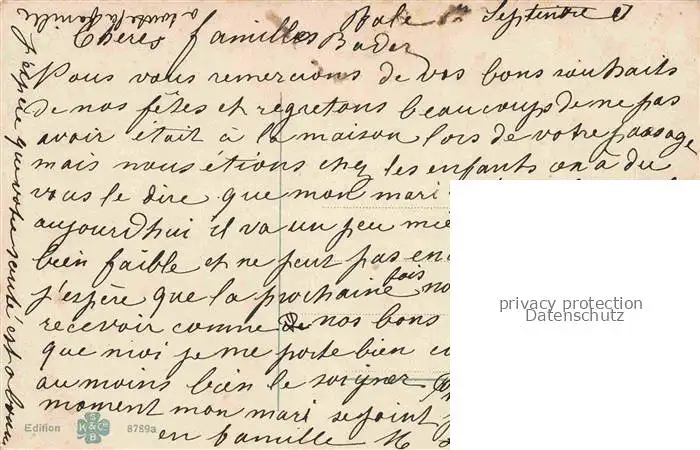 Bale Septembre
Chères familles Bader
Nous vous remercions de vos bons souhaits
de nos fêtes et regretons beaucoup de ne pas
avoir était à la maison lors de votre passage
mais nous étions chez les enfants on a du
vous le dire que mon mari
aujourd'hui il va un peu mie
bien faible et ne peut pas en
j'espère que la prochaine fois no
recevoir comme de nos bons
que moi je me porte bien
au moins bien le soigner
moment mon mari se joint
en famille
J'espère que votre santé est bonne
a toute la famille
privacy protection
Datenschutz
Edition
S
K & Co
B
8789a